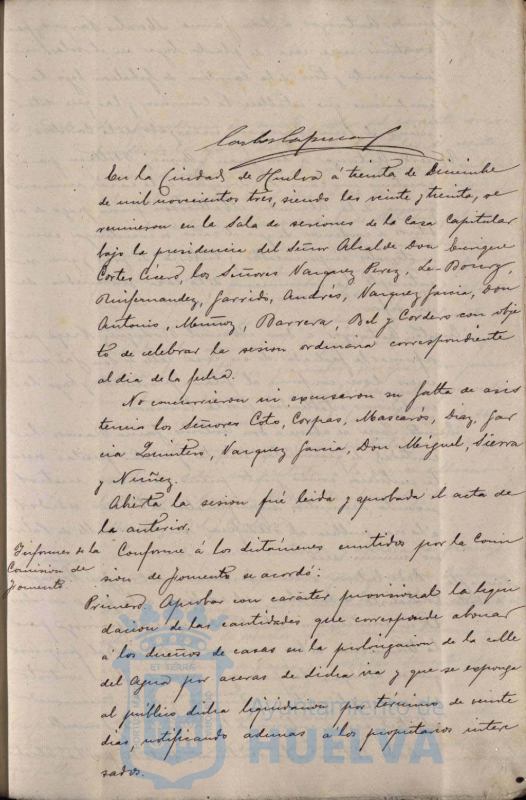 Carlos Lapuente
En la Ciudad de Huelva á treinta de Diciembre
de mil novecientos tres, siendo las veinte y treinta, se
reunieron en la Sala de sesiones de la casa capitular
bajo la presidencia del Señor Alcalde Don Enrique
Cortes Cisero, los Señores Vazquez Perez, Le-Bourg,
Ruifernandez, Garrido, Andrés, Vazquez Garcia, Don
Antonio, Muñoz, Barrera, Bel y Cordero con obje
to de celebrar la sesion ordinaria correspondiente
al dia de la fecha.
No concurrieron ni excusaron su falta de asis
tencia los Señores Coto, Corpas, Mascarós, Diaz, Gar
cia Quintero, Vazquez Garcia, Don Miguel, Sierra
y Nuñez.
Abierta la sesion fué leida y aprobada el acta de
la anterior.
Informes de la
Comision de
Fomento
Conforme á los dictámenes emitidos por la Comi
sion de Fomento se acordó:
Primero Aprobar con carácter provisional la liqui
dacion de las cantidades que corresponde abonar
á los dueños de casas en la prolongacion de la calle
del Agua por aceras de dicha via y que se exponga
al público dicha liquidacion por término de veinte
dias, notificando ademas á los propietarios intere
sados.
Ayuntamiento de
HUELVA